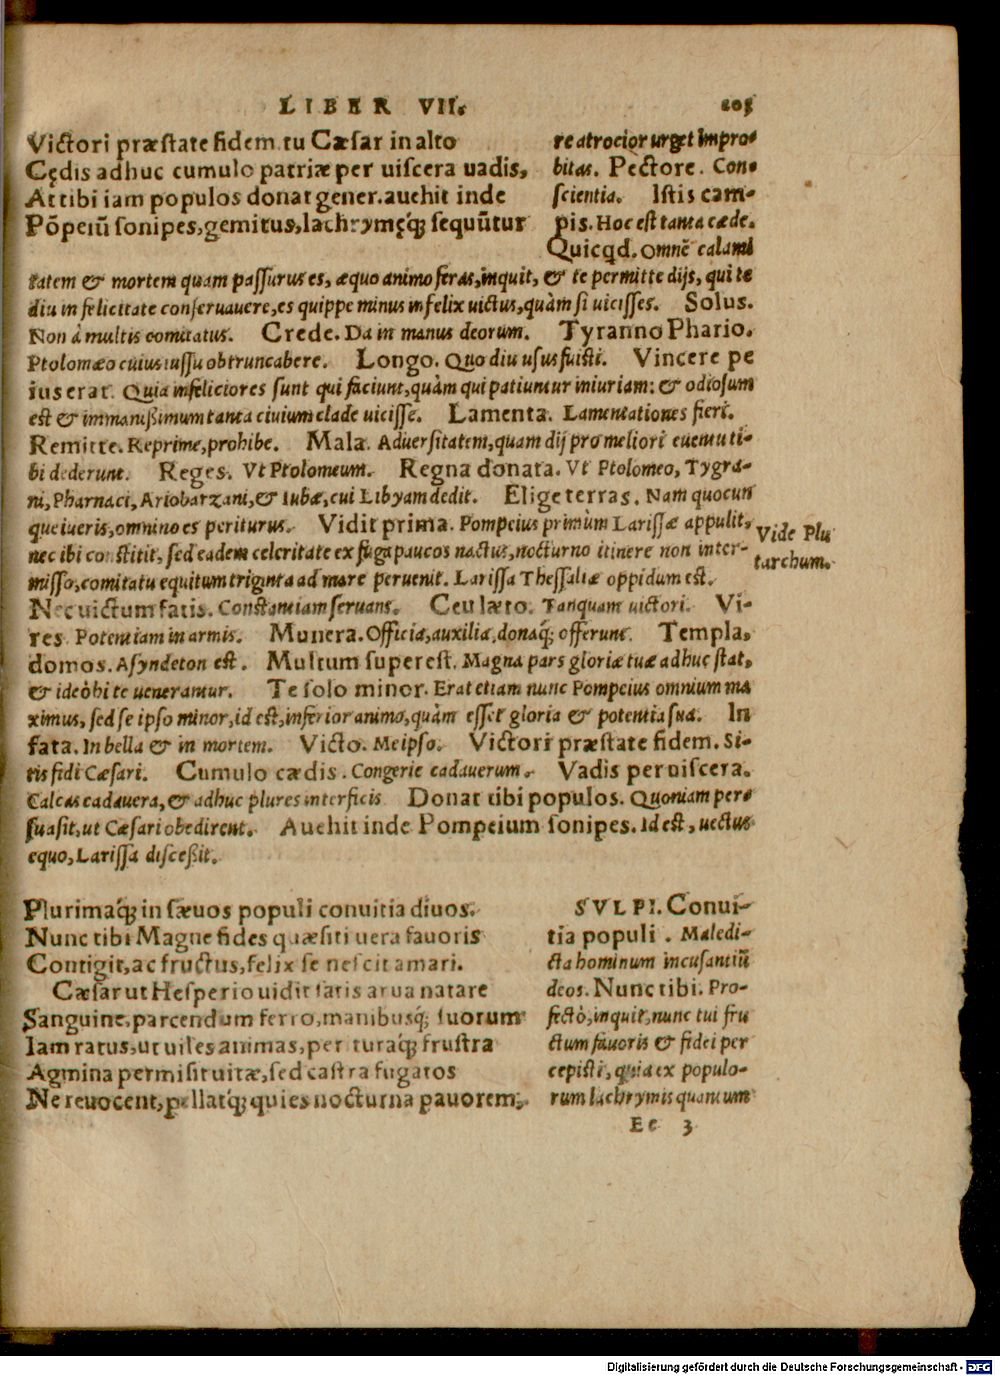 LIBER VII.
203
Victori præstate fidem. tu Cæsar in alto
Cędis adhuc cumulo patriæ per uiscera uadis,
At tibi iam populos donat gener. auehit inde
Põpeiũ sonipes, gemitus, lachrymęq́; sequũtur
re atrocior urget Impro-
bitas. Pectore. Con-
scientia. Istis cam-
pis. Hoc est tanta cæde.
Quicqd. Omnẽ calami
tatem & mortem quam passurus es, æquo animo feras, inquit, & te permitte dijs, qui te
diu in felicitate conseruauere, es quippe minus infelix uictus, quàm si uicisses. Solus.
Non à multis comitatus. Crede. Da in manus deorum. Tyranno Phario.
Ptolomæo cuius iussu obtruncabere. Longo. Quo diu usus fuisti. Vincere pe
ius erat. Quia infeliciores sunt qui faciunt, quàm qui patiuntur iniuriam: & odiosum
est & immanißimum tanta ciuium clade uicisse. Lamenta. Lamentationes fieri.
Remitte. Reprime, prohibe. Mala. Aduersitatem, quam dij pro meliori euentu ti-
bi dederunt. Reges. Vt Ptolomeum. Regna donata. Vt Ptolomeo, Tygra-
ni, Pharnaci, Ariobarzani, & Iubæ, cui Libyam dedit. Elige terras. Nam quocun
que iueris, omnino es periturus. Vidit prima. Pompeius primùm Larissæ appulit,
nec ibi constitit, sed eadem celeritate ex fuga paucos nactus, nocturno itinere non inter-
misso, comitatu equitum triginta ad mare peruenit. Larissa Thessaliæ oppidum est.
Vide Plu
tarchum.
Nec uictum fatis. Constantiam seruans. Ceu læto. Tanquam uictori. Vi-
res. Potentiam in armis. Munera. Officia, auxilia, donaq́; offerunt. Templa,
domos. Asyndeton est. Multum superest. Magna pars gloriæ tuæ adhuc stat,
& ideò hi te uenerantur. Te solo minor. Erat etiam nunc Pompeius omnium ma
ximus, sed se ipso minor, id est, inferior animo, quàm esset gloria & potentia sua. In
fata. In bella & in mortem. Victo. Meipso. Victori præstate fidem. Si-
tis fidi Cæsari. Cumulo cædis. Congerie cadauerum. Vadis per uiscera.
Calcas cadauera, & adhuc plures interficis Donat tibi populos. Quoniam per-
suasit, ut Cæsari obedirent. Auehit inde Pompeium sonipes. Id est, uectus
equo, Larissa disceßit.
Plurimaq́; in sæuos populi conuitia diuos.
Nunc tibi Magne fides quæsiti uera fauoris
Contigit, ac fructus, felix se nescit amari.
Cæsar ut Hesperio uidit satis arua natare
Sanguine, parcendum ferro, manibusq́; suorum
Iam ratus, ut uiles animas, per turaq́; frustra
Agmina permisit uitæ, sed castra fugatos
Ne reuocent, pellatq́; quies nocturna pauorem,
SVLPI. Conui-
tia populi. Maledi-
cta hominum incusantiũ
deos. Nunc tibi. Pro-
fectò, inquit, nunc tui fru
ctum fauoris & fidei per
cepisti, quia ex populo-
rum lachrymis quantum
Ee 3
Digitalisierung gefördert durch die Deutsche Forschungsgemeinschaft - DFG